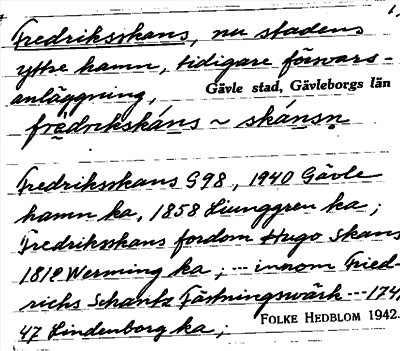 Fredriksskans, nu stadens
yttre hamn, tidigare försvars-
anläggning,
Gävle stad, Gävleborgs län
frèdrikskáns ~ skánsn
Fredriksskans G98, 1940 Gävle
hamn ka, 1858 Ljunggren ka;
Fredriksskans fordom Hugo Skans
1818 Werming ka; --- innom Fried-
richs Schants Fästningswärk --- 174
47 Lindenborg ka;
FOLKE HEDBLOM 1942.